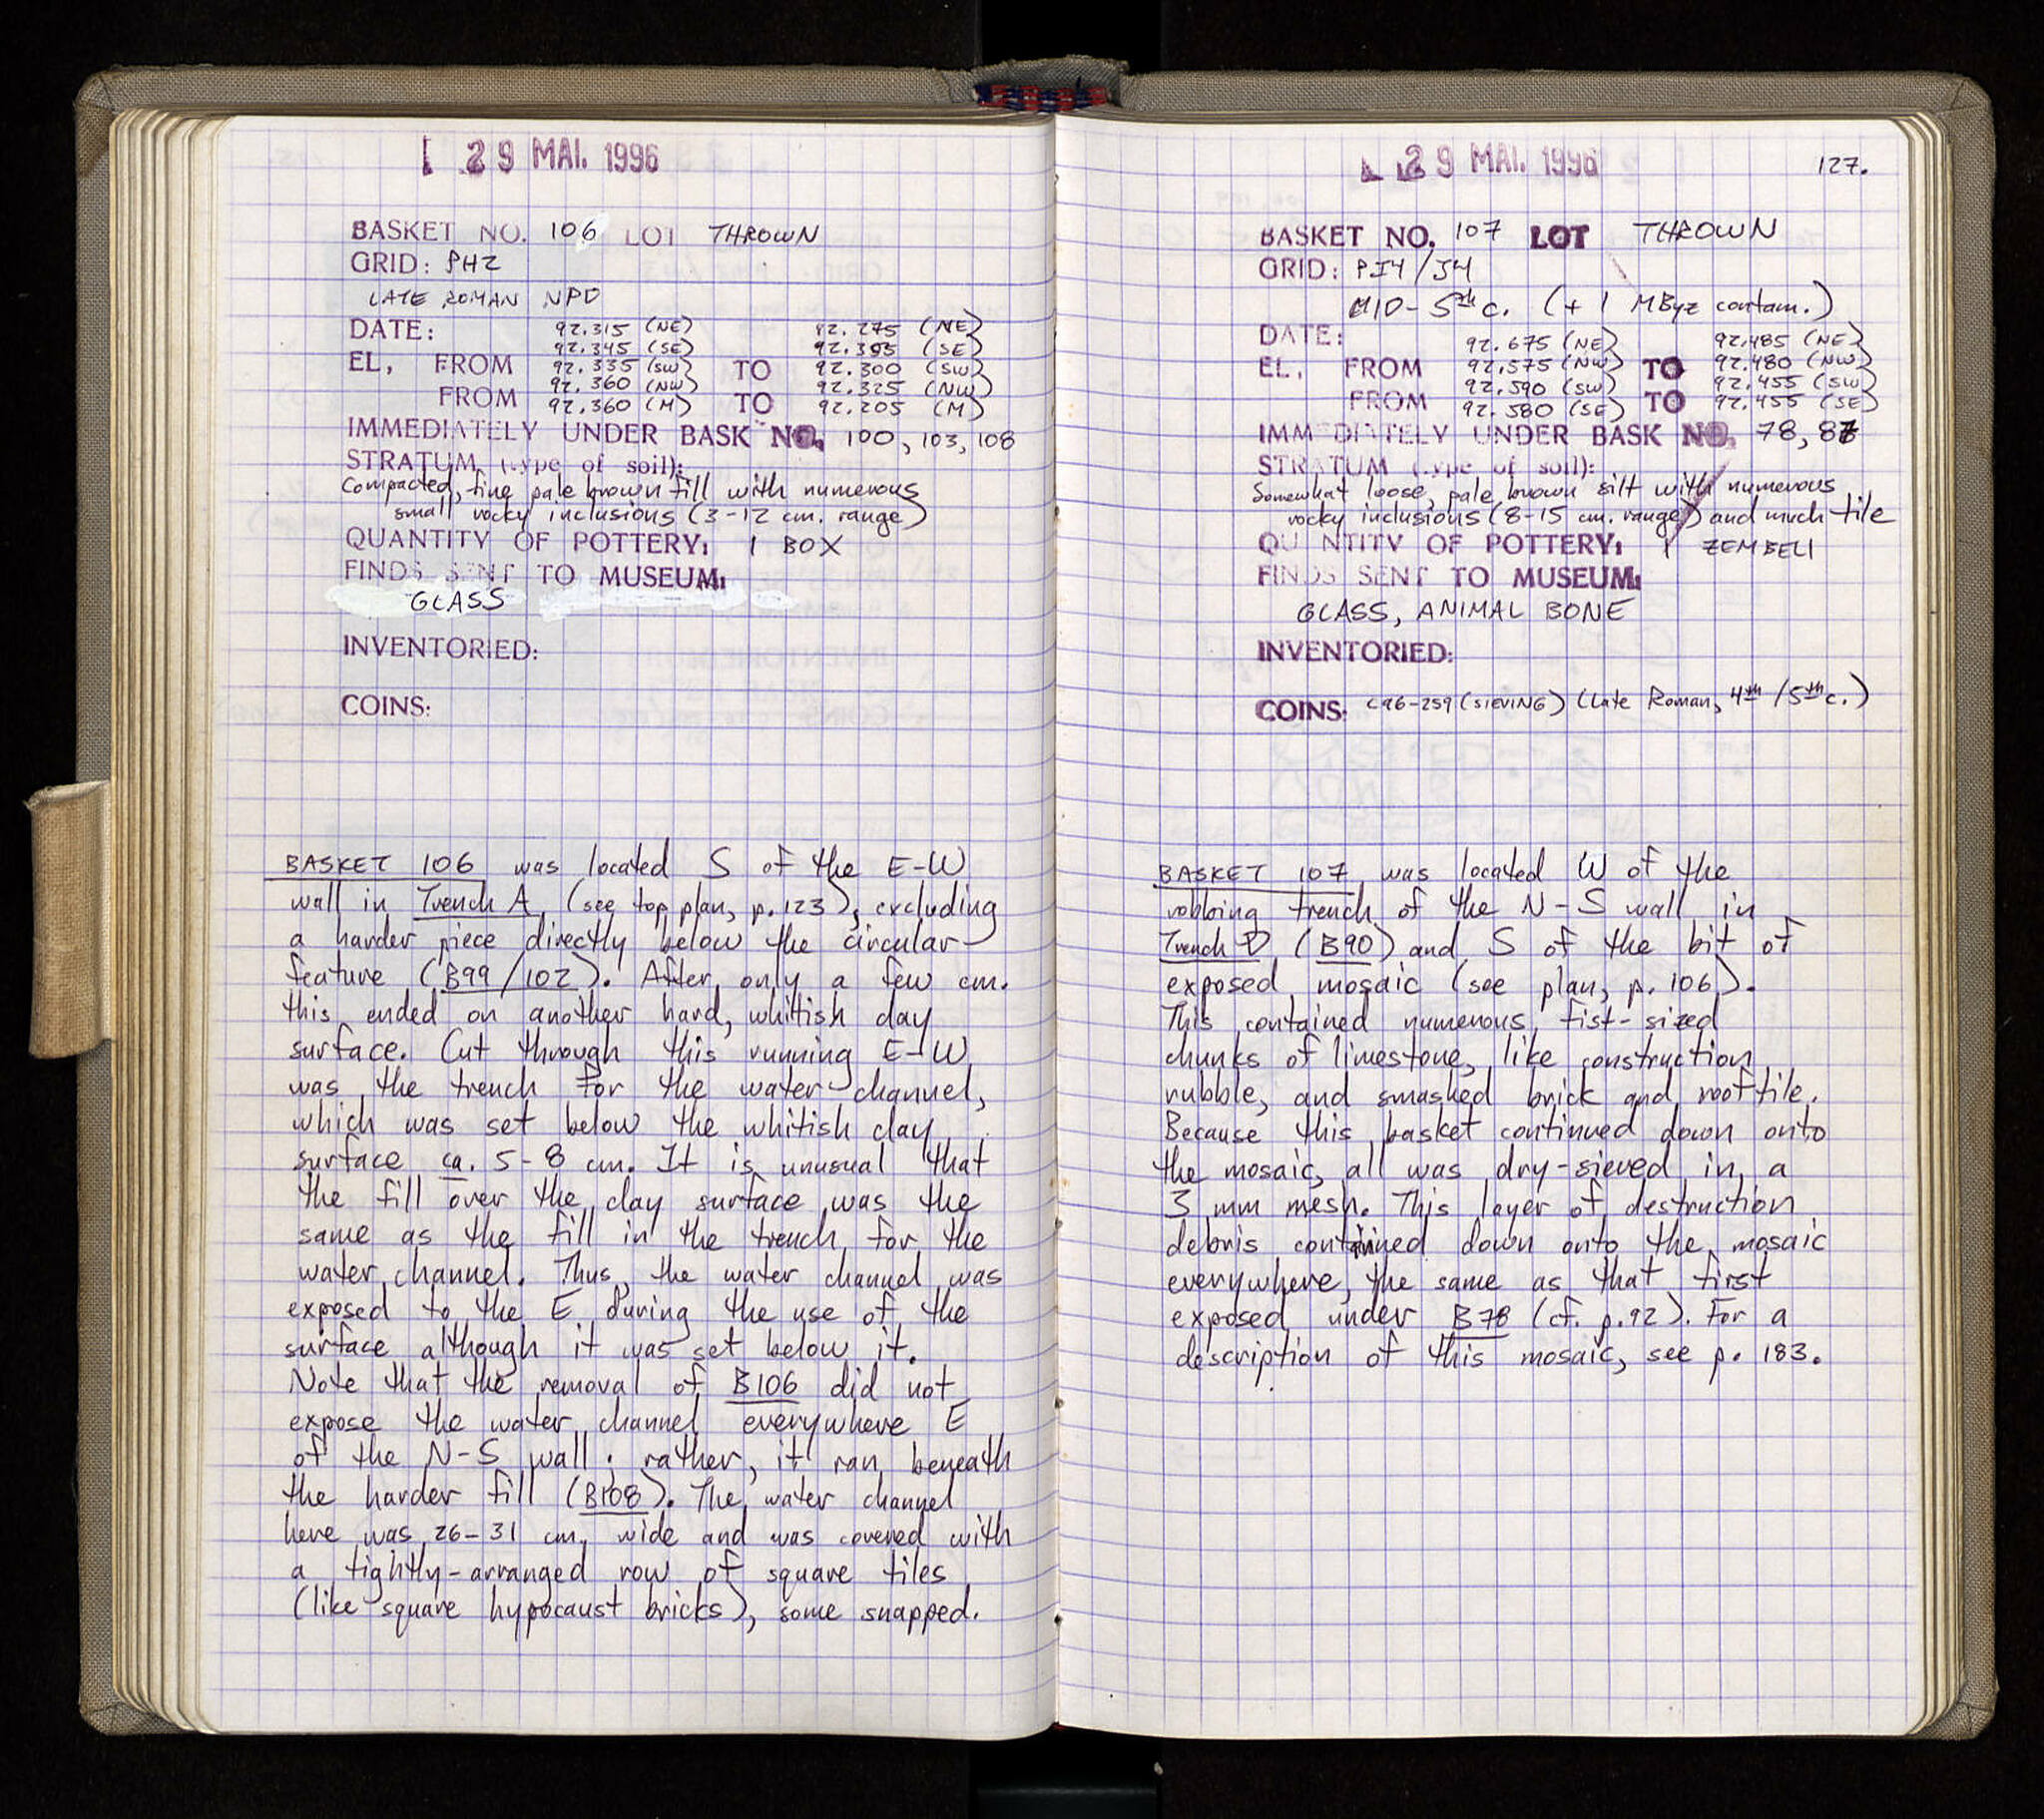 29 MAI. 1996
BASKET NO. 106 LOT THROWN
GRID: PHZ
LATE ROMAN NPD
DATE: 92.315 (NE) 92.275 (NE)
92.345 (SE) 92.395 (SE)
EL, FROM 92.335 (SW) TO 92.300 (SW)
92.360 (NW) 92.325 (NW)
FROM 92.360 (M) TO 92.205 (M)
IMMEDIATELY UNDER BASK NO. 100, 103, 108
STRATUM (type of soil):
Compacted, fine pale brown fill with numerous
small rocky inclusions (3-12 cm. range)
QUANTITY OF POTTERY: 1 BOX
FINDS SENT TO MUSEUM:
GLASS
INVENTORIED:
COINS:
BASKET 106 was located S of the E-W
wall in Trench A (see top plan, p. 123), excluding
a harder piece directly below the circular
feature (B99/102). After only a few cm.
this ended on another hard, whitish clay
surface. Cut through this running E-W
was the trench for the water channel,
which was set below the whitish clay
surface ca. 5-8 cm. It is unusual that
the fill over the clay surface was the
same as the fill in the trench for the
water channel. Thus, the water channel was
exposed to the E during the use of the
surface although it was set below it.
Note that the removal of B106 did not
expose the water channel everywhere E
of the N-S wall; rather, it ran beneath
the harder fill (B108). The water channel
here was 26-31 cm. wide and was covered with
a tightly-arranged row of square tiles
(like square hypocaust bricks), some snapped.
29 MAI. 1996
127.
BASKET NO. 107 LOT THROWN
GRID: PI4/J4
MID-5th c. (+ 1 MByz contam.)
DATE: 92.675 (NE) 92.485 (NE)
EL, FROM 92.575 (NW) TO 92.480 (NW)
92.590 (SW) 92.455 (SW)
FROM 92.580 (SE) TO 92.455 (SE)
IMMEDIATELY UNDER BASK NO. 78, 87
STRATUM (type of soil):
Somewhat loose, pale brown silt with numerous
rocky inclusions (8-15 cm. range) and much tile
QUANTITY OF POTTERY: 1 ZEMBELI
FINDS SENT TO MUSEUM:
GLASS, ANIMAL BONE
INVENTORIED:
COINS: C96-259 (SIEVING) (Late Roman, 4th/5th c.)
BASKET 107 was located W of the
robbing trench of the N-S wall in
Trench D (B90) and S of the bit of
exposed mosaic (see plan, p. 106).
This contained numerous fist-sized
chunks of limestone, like construction
rubble, and smashed brick and rooftile.
Because this basket continued down onto
the mosaic, all was dry-sieved in a
3 mm mesh. This layer of destruction
debris continued down onto the mosaic
everywhere, the same as that first
exposed under B78 (cf. p. 92). For a
description of this mosaic, see p. 183.